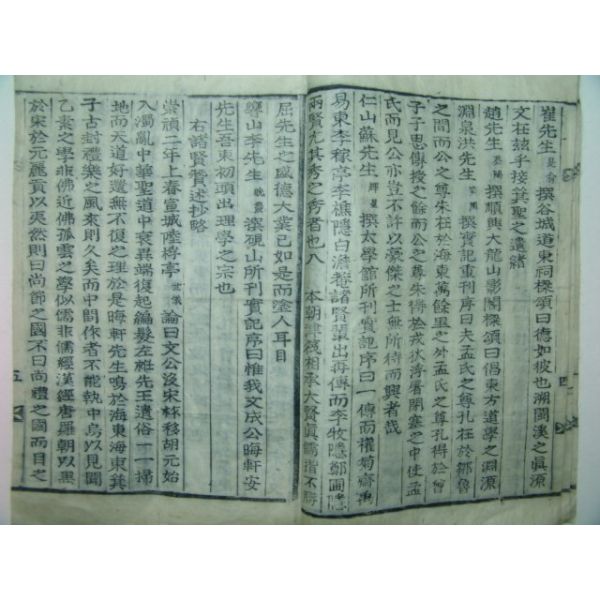 崔先生 撰谷城道東祠樑頌曰德如彼也溯閩溪之眞源
文在玆乎接箕聖之遺緖
趙先生 撰順興大龍山影閣樑頌曰倡東方道學之淵源
淵泉洪先生 撰實記重刊序曰夫孟氏之尊孔在於鄒魯
之間而公之尊朱在於海東萬餘里之外孟氏之尊孔得於曾
子子思傳授之餘而公之尊朱得於戎狄浮屠閉塞之中使孟
氏而見公亦豈不許以豪傑之士無所待而興者哉
仁山蘇先生 撰太學館所刊實記序曰一傳而權菊齋禹
易東李稼亭李樵隱白澹菴諸賢輩出再傳而李牧隱鄭圃隱
兩賢尤其秀之秀者也 本朝 相承大賢眞儒指不勝
屈先生之盛德大業已如是而塗人耳目
響山李先生 晩燾 撰硯山所刊實記序曰惟我文成公晦軒安
先生吾東初頭出理學之宗也
右諸賢贊述抄略
崇禎二年上春宣城陸 亭 世儀 論曰文公沒宋祚移胡元始
入濁亂中華聖道中衰異端復起編髮左袵先王遺俗一一掃
地而天道好還無不復之理於是晦軒先生鳴於海東海東箕
子古封禮樂之風來則久矣而中間作者不能執中烏以見聞
乙素之學非佛近佛孤雲之學似儒非儒經漢經唐羅朝以黑
於宋於元麗貢以夷然則曰尙節之國不曰尙禮之國而目之
五